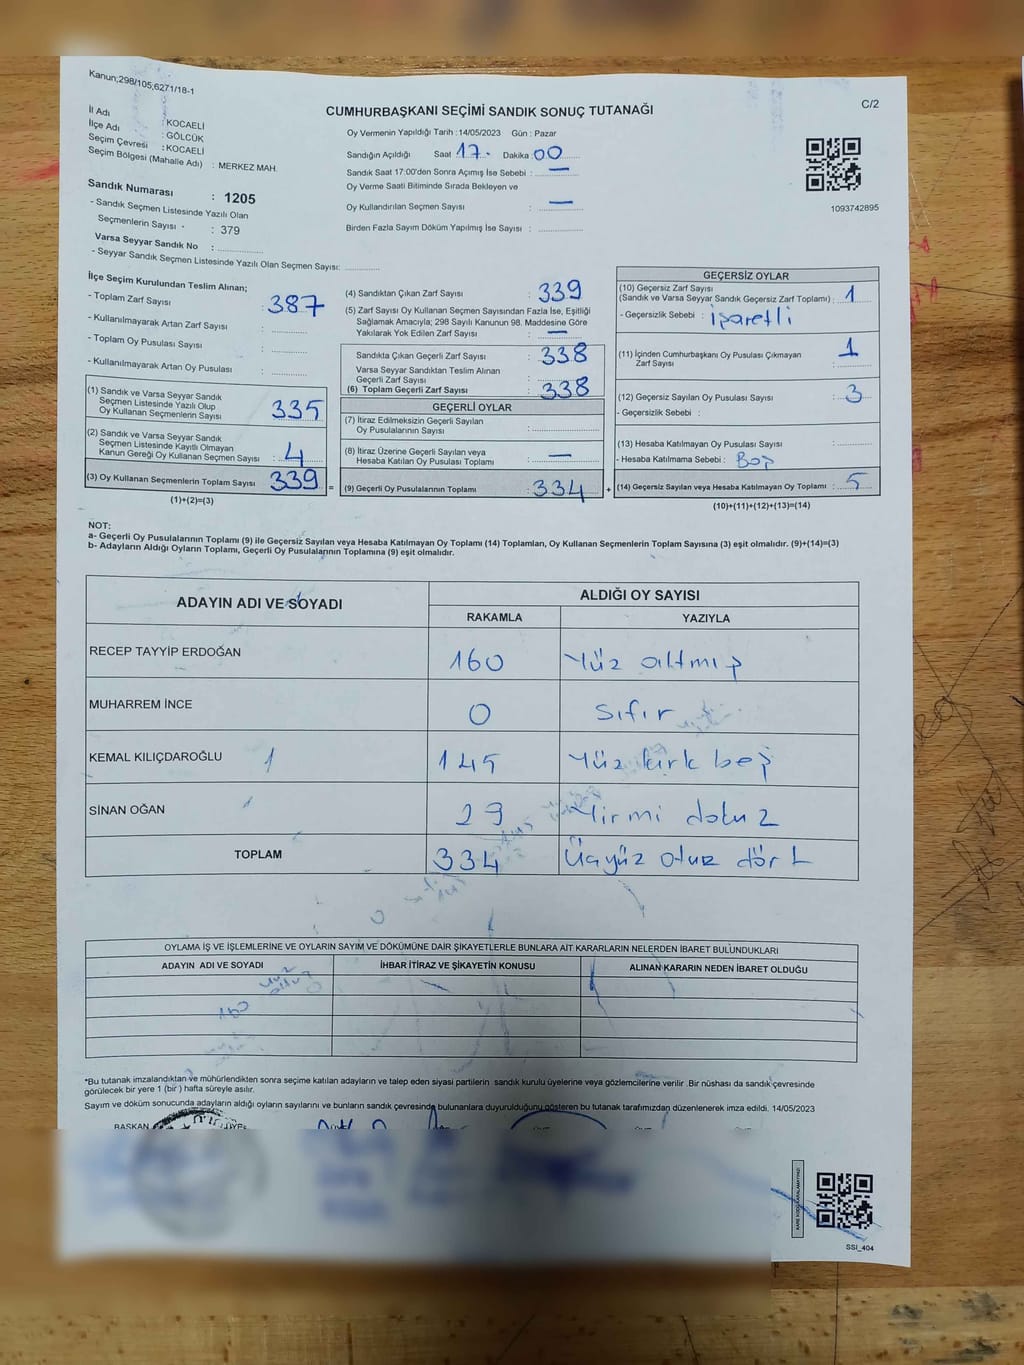 Kanun;298/105,6271/18-1
CUMHURBAŞKANI SEÇİMİ SANDIK SONUÇ TUTANAĞI
C/2
İl Adı : KOCAELİ
İlçe Adı : GÖLCÜK
Seçim Çevresi : KOCAELİ
Seçim Bölgesi (Mahalle Adı) : MERKEZ MAH.
Sandık Numarası : 1205
- Sandık Seçmen Listesinde Yazılı Olan
Seçmenlerin Sayısı : 379
Varsa Seyyar Sandık No :
- Seyyar Sandık Seçmen Listesinde Yazılı Olan Seçmen Sayısı:
Oy Vermenin Yapıldığı Tarih : 14/05/2023 Gün : Pazar
Sandığın Açıldığı Saat 17. Dakika : 00
Sandık Saat 17:00'den Sonra Açımış İse Sebebi : —
Oy Verme Saati Bitiminde Sırada Bekleyen ve
Oy Kullandırılan Seçmen Sayısı : —
Birden Fazla Sayım Döküm Yapılmış İse Sayısı :
1093742895
İlçe Seçim Kurulundan Teslim Alınan;
- Toplam Zarf Sayısı : 387
- Kullanılmayarak Artan Zarf Sayısı :
- Toplam Oy Pusulası Sayısı :
- Kullanılmayarak Artan Oy Pusulası :
(1) Sandık ve Varsa Seyyar Sandık
Seçmen Listesinde Yazılı Olup
Oy Kullanan Seçmenlerin Sayısı : 335
(2) Sandık ve Varsa Seyyar Sandık
Seçmen Listesinde Kayıtlı Olmayan
Kanun Gereği Oy Kullanan Seçmen Sayısı : 4
(3) Oy Kullanan Seçmenlerin Toplam Sayısı : 339
(1)+(2)=(3)
(4) Sandıktan Çıkan Zarf Sayısı : 339
(5) Zarf Sayısı Oy Kullanan Seçmen Sayısından Fazla İse, Eşitliği
Sağlamak Amacıyla; 298 Sayılı Kanunun 98. Maddesine Göre
Yakılarak Yok Edilen Zarf Sayısı : —
Sandıkta Çıkan Geçerli Zarf Sayısı : 338
Varsa Seyyar Sandıktan Teslim Alınan
Geçerli Zarf Sayısı :
(6) Toplam Geçerli Zarf Sayısı : 338
GEÇERLİ OYLAR
(7) İtiraz Edilmeksizin Geçerli Sayılan
Oy Pusulalarının Sayısı :
(8) İtiraz Üzerine Geçerli Sayılan veya
Hesaba Katılan Oy Pusulası Toplamı : —
= (9) Geçerli Oy Pusulalarının Toplamı : 334 +
GEÇERSİZ OYLAR
(10) Geçersiz Zarf Sayısı
(Sandık ve Varsa Seyyar Sandık Geçersiz Zarf Toplamı) : 1
- Geçersizlik Sebebi : işaretli
(11) İçinden Cumhurbaşkanı Oy Pusulası Çıkmayan
Zarf Sayısı : 1
(12) Geçersiz Sayılan Oy Pusulası Sayısı : 3
- Geçersizlik Sebebi :
(13) Hesaba Katılmayan Oy Pusulası Sayısı :
- Hesaba Katılmama Sebebi : Boş
(14) Geçersiz Sayılan veya Hesaba Katılmayan Oy Toplamı : 5
(10)+(11)+(12)+(13)=(14)
NOT:
a- Geçerli Oy Pusulalarının Toplamı (9) ile Geçersiz Sayılan veya Hesaba Katılmayan Oy Toplamı (14) Toplamları, Oy Kullanan Seçmenlerin Toplam Sayısına (3) eşit olmalıdır. (9)+(14)=(3)
b- Adayların Aldığı Oyların Toplamı, Geçerli Oy Pusulalarının Toplamına (9) eşit olmalıdır.
ADAYIN ADI VE SOYADI
ALDIĞI OY SAYISI
RAKAMLA YAZIYLA
RECEP TAYYİP ERDOĞAN 160 Yüz altmış
MUHARREM İNCE 0 sıfır
KEMAL KILIÇDAROĞLU 145 Yüz kırk beş
SİNAN OĞAN 29 Yirmi dokuz
TOPLAM 334 Üçyüz otuz dört
OYLAMA İŞ VE İŞLEMLERİNE VE OYLARIN SAYIM VE DÖKÜMÜNE DAİR ŞİKAYETLERLE BUNLARA AİT KARARLARIN NELERDEN İBARET BULUNDUKLARI
ADAYIN ADI VE SOYADI İHBAR İTİRAZ VE ŞİKAYETİN KONUSU ALINAN KARARIN NEDEN İBARET OLDUĞU
*Bu tutanak imzalandıktan ve mühürlendikten sonra seçime katılan adayların ve talep eden siyasi partilerin sandık kurulu üyelerine veya gözlemcilerine verilir. Bir nüshası da sandık çevresinde
görülecek bir yere 1 (bir) hafta süreyle asılır.
Sayım ve döküm sonucunda adayların aldığı oyların sayılarını ve bunların sandık çevresinde bulunanlara duyurulduğunu gösteren bu tutanak tarafımızdan düzenlenerek imza edildi. 14/05/2023
BAŞKAN
SSİ_404